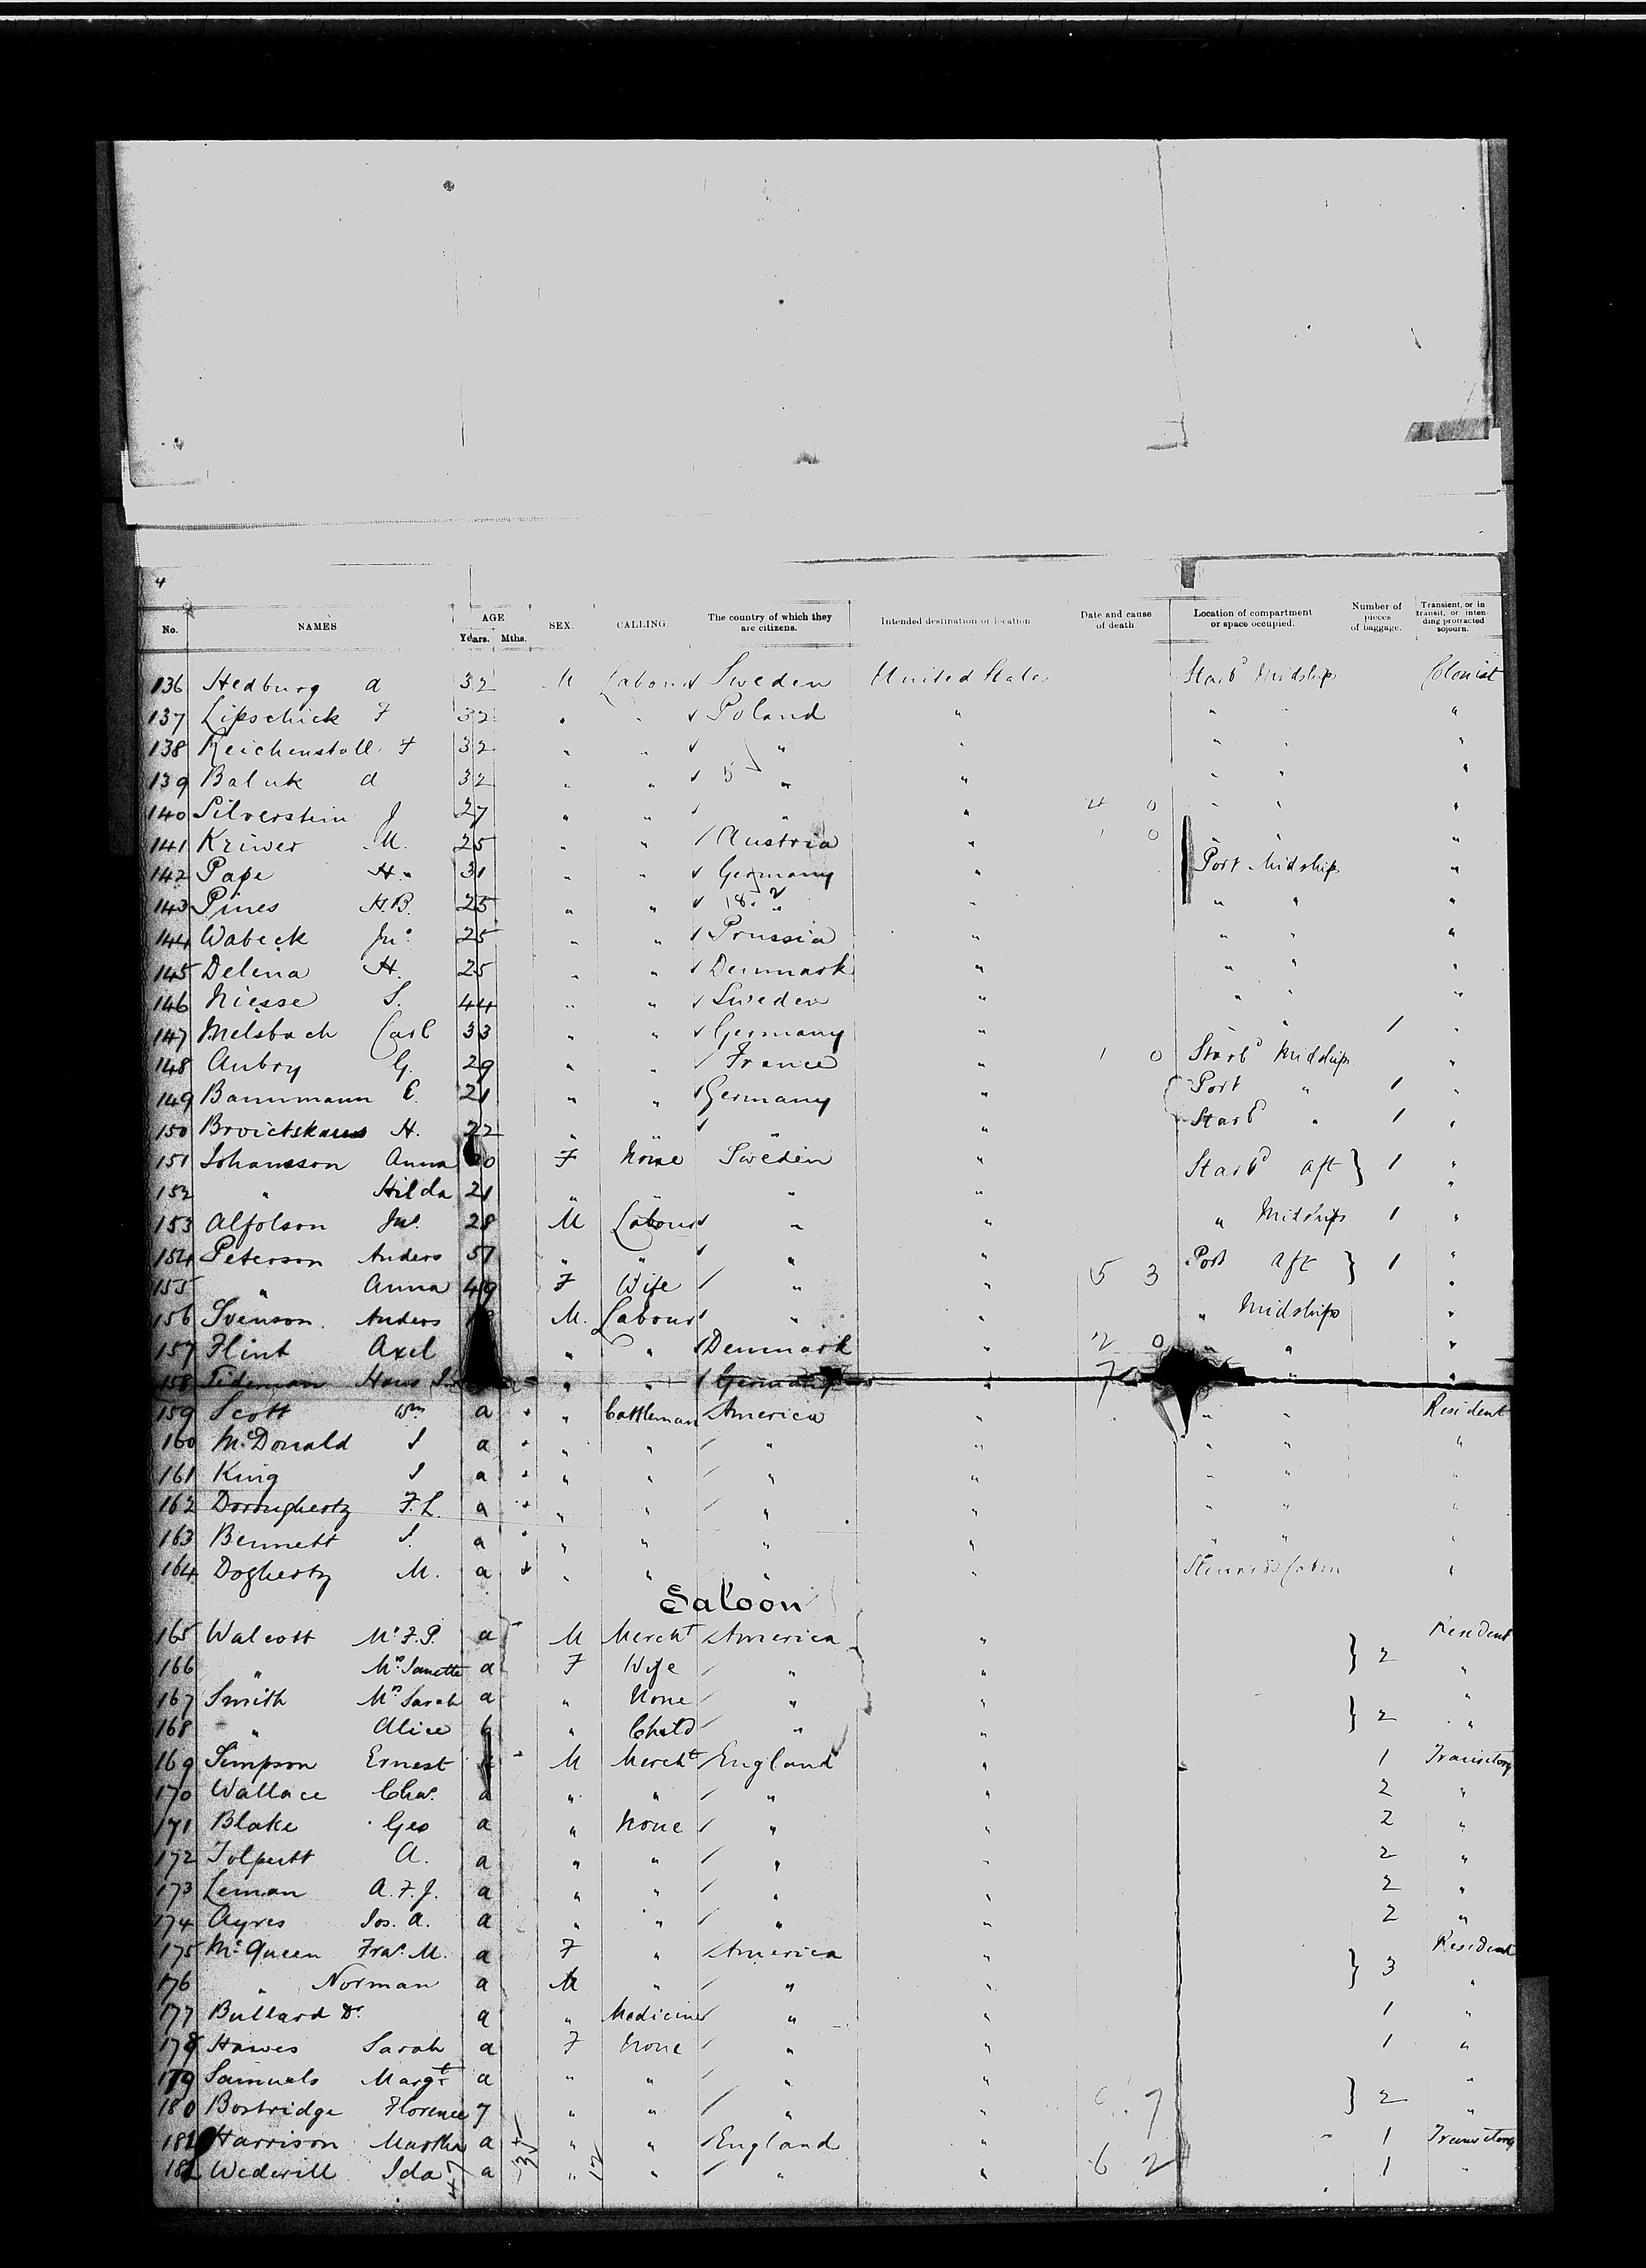 4
No. NAMES AGE. Years. Mths. SEX. CALLING. The country of which they are citizens. Intended destination or location Date and cause of death. Location of compartment or space occupied. Number of pieces of baggage. Transient, or in transit, or intending protracted sojourn.
136 Hedburg A 32 M Labourer Sweden United States Starbd Midships Colonist
137 Lipschick F 32 " " Poland " " " "
138 Reichenstall F 32 " " " " " " "
139 Baluk A 32 " " 5 " " " " "
140 Silverstein J 27 " " " " 4 0 " " "
141 Kriwer M. 25 " " Austria " 1 0 " " "
142 Pape H. 31 " " Germany " Port Midships "
143 Pines H.B. 25 " " 18. 2 " " " " "
144 Wabeck Jno 25 " " Prussia " " " "
145 Delena H. 25 " " Denmark " " " "
146 Niesse S. 44 " " Sweden " " " "
147 Melsbach Carl 33 " " Germany " " " 1 "
148 Aubry G. 29 " " France " 1 0 Starbd Midships "
149 Bannmann E. 21 " " Germany " Port " 1 "
150 H. 22 " " " " Starbd " 1 "
151 Johansson Anna 60 F None Sweden " Starbd aft } 1 "
152 " Hilda 21 " " " " "
153 Alfolson Jno. 28 M Labourer " " " Midships 1 "
154 Peterson Anders 51 " " " " Port aft } 1 "
155 " Anna 49 F Wife " " 5 3 "
156 Svenson Anders M. Labourer " " " Midships "
157 Flint Axel " " Denmark " 2 0 " " "
158 Tideman Hans " " Germany " 7 " "
159 Scott Wm a " Cattleman America " " " Resident
160 McDonald J a " " " " " " "
161 King J a " " " " " " "
162 Dorrougherty F.L. a " " " " " " "
163 Bennett J. a " " " " " " "
164 Dogherty M. a " " " " Cabin "
Saloon
165 Walcott Mr F.P. a M Mercht America " } 2 Resident
166 " Mrs Janette a F Wife " " "
167 Smith Mrs Sarah a " None " " } 2 "
168 " Alice 6 " Child " " "
169 Simpson Ernest a M Mercht England " 1 Transitory
170 Wallace Chas. a " " " " 2 "
171 Blake Geo a " None " " 2 "
172 Tolputt A. a " " " " 2 "
173 Leman A.F.J. a " " " " 2 "
174 Ayres Jos. A. a " " " " 2 "
175 McQueen Fras. M. a F " America " } 3 Resident
176 " Norman a M " " " "
177 Bullard Dr. a " Medicine " " 1 "
178 Hawes Sarah a F None " " 1 "
179 Samuels Margt a " " " " } 2 "
180 Bostridge Florence 7 " " " " 7 "
181 Harrison Martha a " " England " 1 Transitory
182 Wederill Ida a " " " " 6 2 1 "
47 12